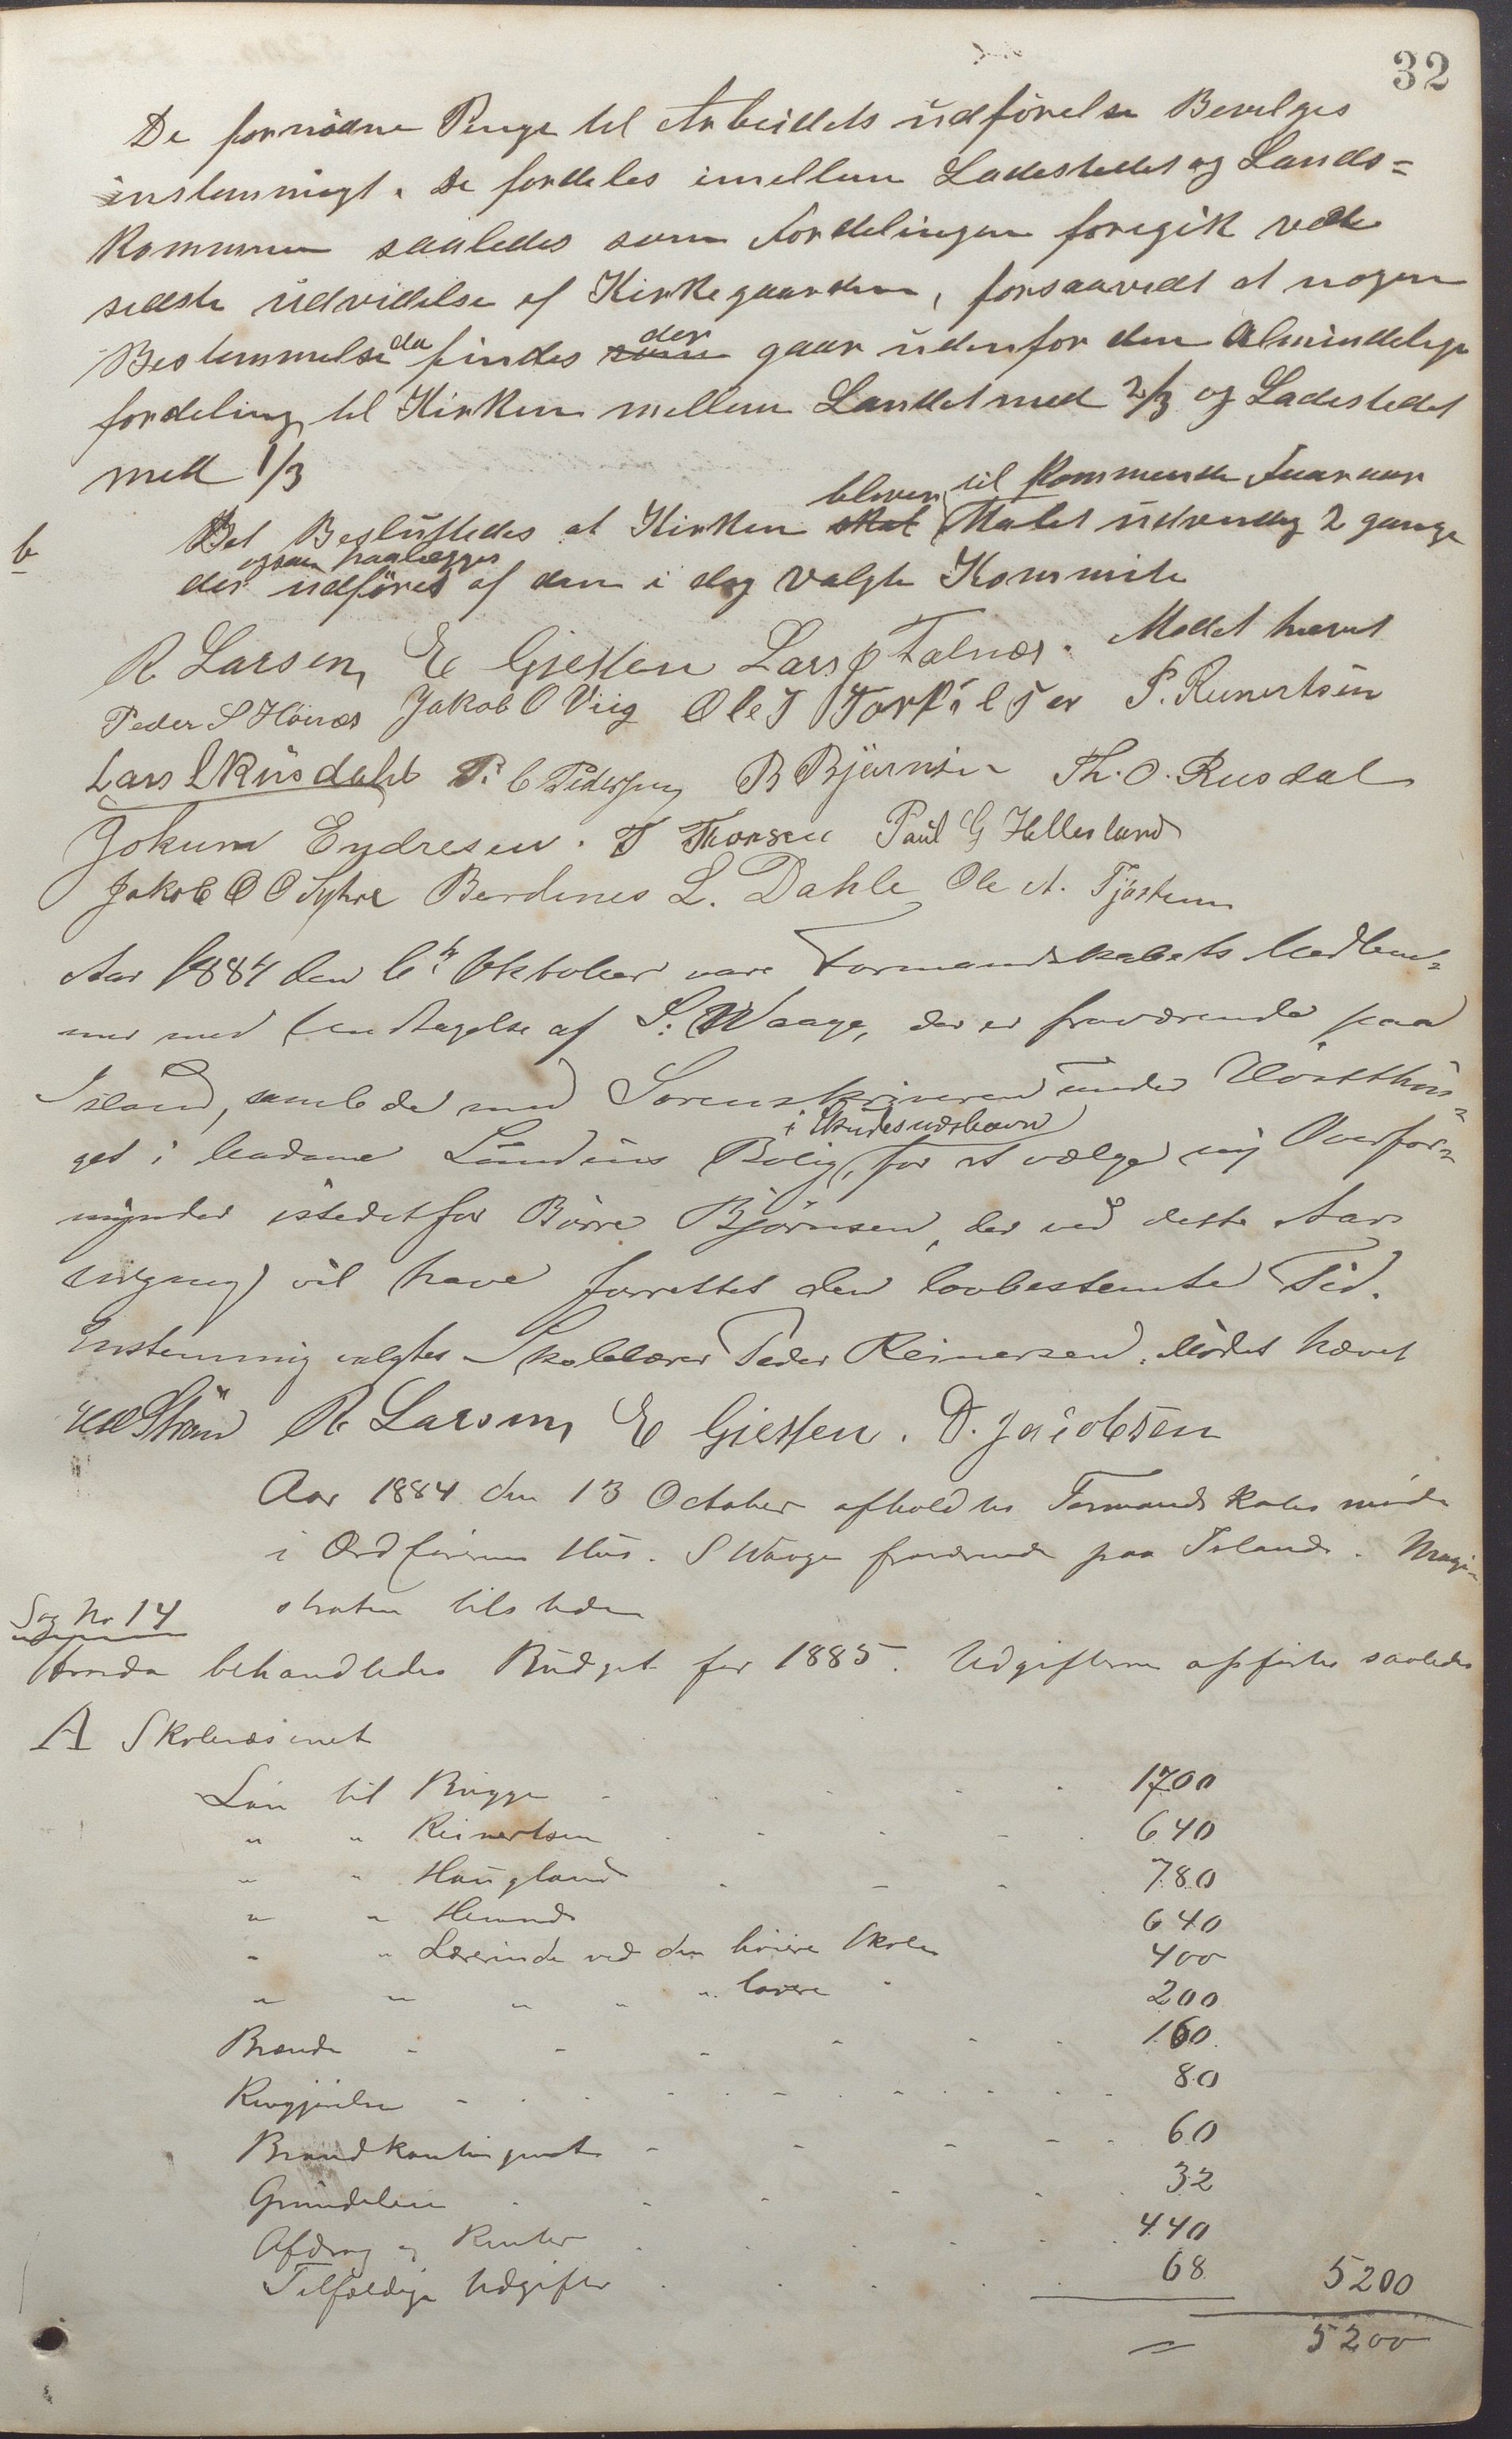 32
De fornödne Penge til Arbeidets udförelse Bevilges
enstemmigt. De fordeles imellem Ladestedet og Lands=
kommunen saaledes som Fordelingen foregik ved
sidste udvidelse af Kirkegaarden, forsaavidt at nogen
Bestemmelse da findes der gaar udenfor den Almindelige
fordeling til Kirken mellem Landet med 2/3 og Ladestedet
med 1/3
b Det Besluttedes at Kirken bliver til Kommende Foraar Malet udvendig 2 gange
der udföres ogsaa paalægges af den i dag Valgte Kommite
Mödet hævet
R Larsen, E Gjessen Lars Ø Falnæs.
Peder S Hönes Jakob O Viig Ole T Torkilsen P. Reinertsen
Lars L Risdahl P. C Pedersen B Bjørnsen Th. O. Risdal
Jokum Endresen. T Thorsen Paul G Hillesland
Jakob O O Syhre Berdines L. Dahle Ole A. Tjöstem
Aar 1884 den 6te Oktober vare Formandskabets Medlem=
mer med Undtagelse af S. Waage, der er fraværende paa
Island, samlede med Sorenskriveren under Höstthin=
get i Madame Bolig, i Skudesneshavn for at vælge ny Overfor=
mynder istedetfor Börre Björnsen, der ved dette Aars
Udgang vil have forrettet den lovbestemte Tid.
Enstemmig valgtes Skolelærer Peder Reinersen. Mödet hævet
R Larsen, E Gjessen. D. Jacobsen
Aar 1884 den 13 October afholdtes Formandskabsmöde
i Ordförerens Hus. S Waage fraværende paa Island. Magi=
straten tilstede
Sag No 14
behandledes Budget for 1885. Udgifterne opförtes saaledes
A Skolevæsenet
Lön til Brügge 1700
" " Reinertsen 640
" " Haugland 780
" " 640
" " Lærerinde ved den höiere Skole 400
" " " " " lavere " 200
Brænde 160
Rengjörelse 80
Brandkontingent 60
Grundeleie 32
Afdrag og Renter 440
Tilfældige Udgifter 68 5200
5200